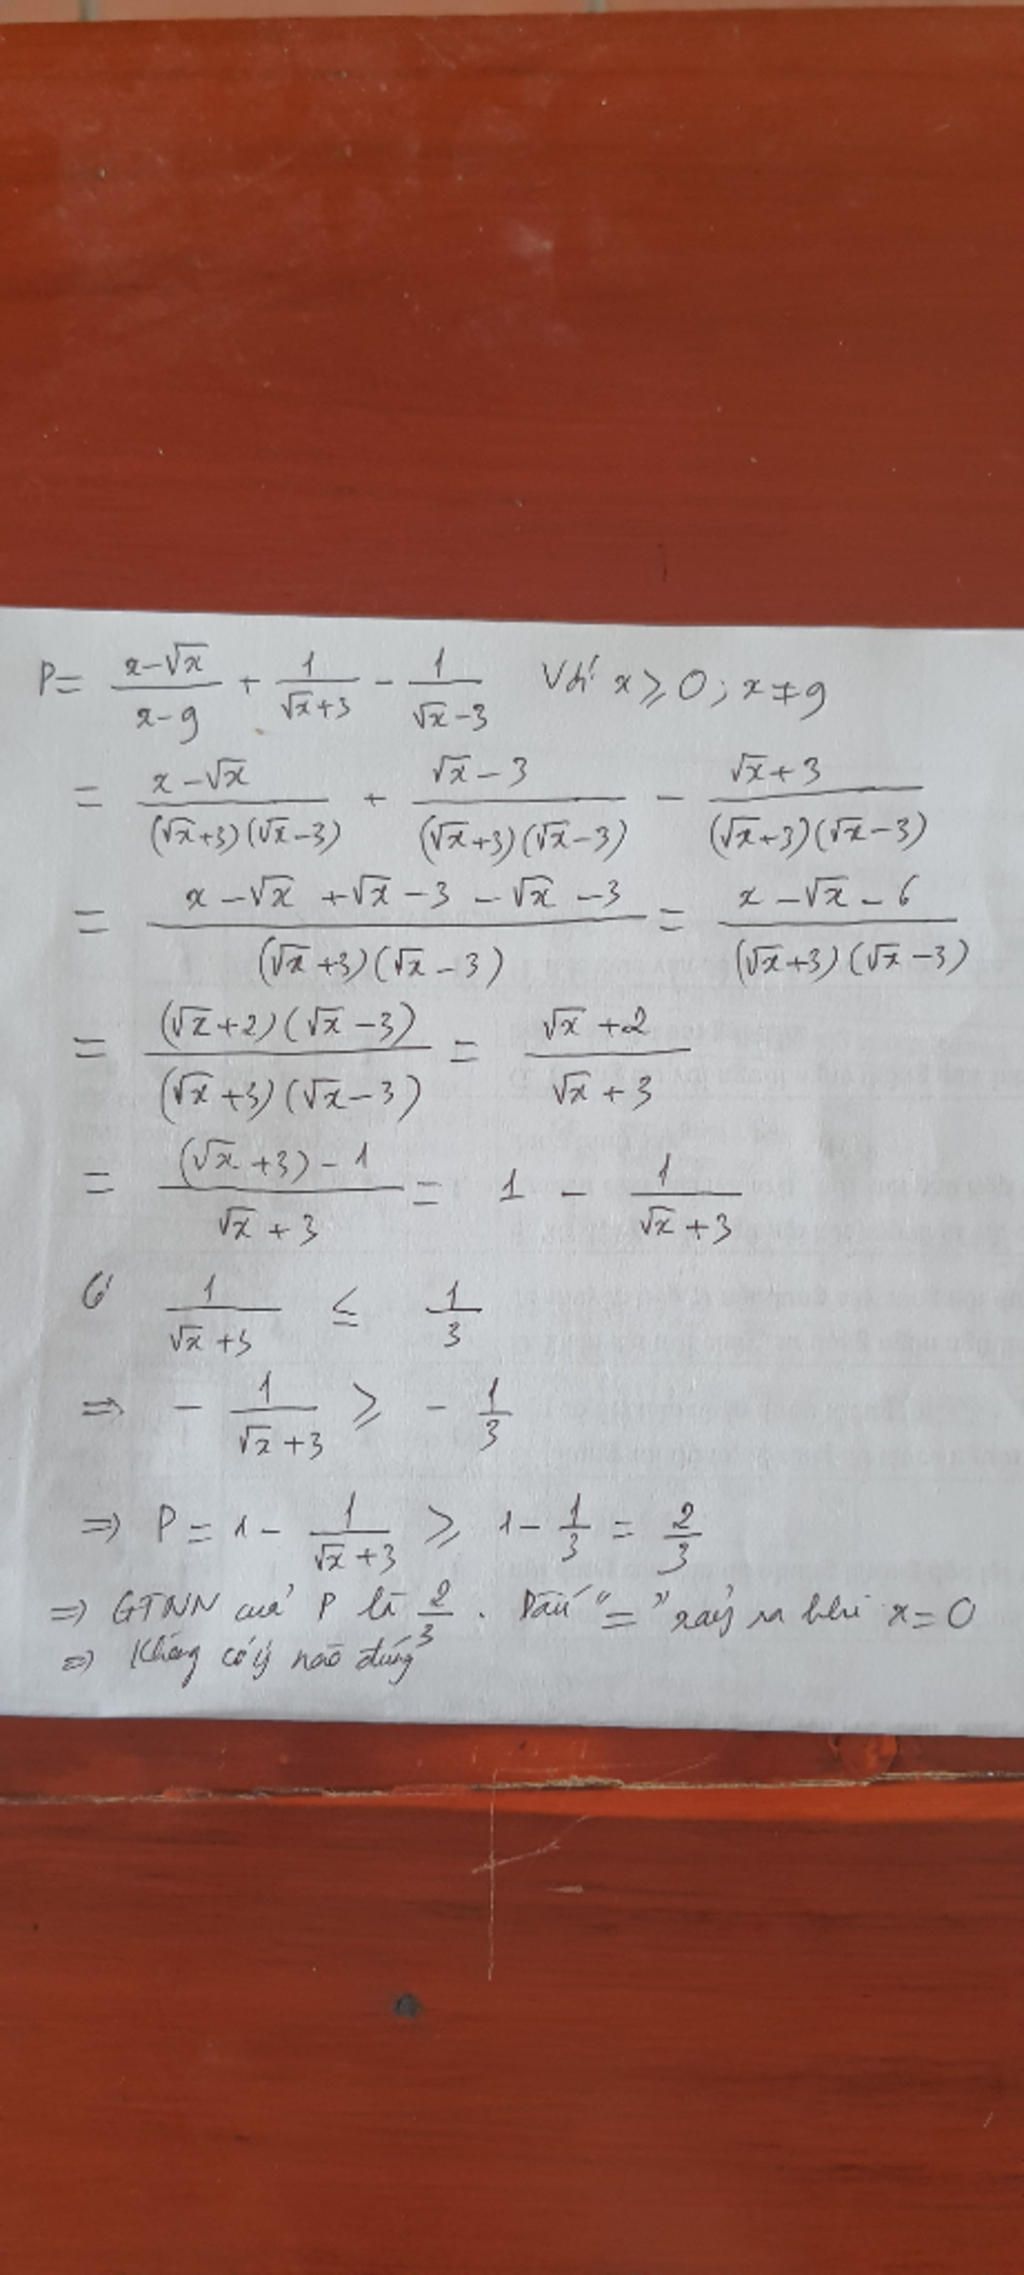 P = (x-√x)/(x-9) + 1/(√x+3) - 1/(√x-3) Với x ⩾ 0; x ≠ 9
= (x-√x)/((√x+3)(√x-3)) + (√x-3)/((√x+3)(√x-3)) - (√x+3)/((√x+3)(√x-3))
= (x-√x+√x-3-√x-3)/((√x+3)(√x-3)) = (x-√x-6)/((√x+3)(√x-3))
= ((√x+2)(√x-3))/((√x+3)(√x-3)) = (√x+2)/(√x+3)
= ((√x+3)-1)/(√x+3) = 1 - 1/(√x+3)
Có 1/(√x+3) ≤ 1/3
⇒ - 1/(√x+3) ⩾ - 1/3
⇒ P = 1 - 1/(√x+3) ⩾ 1 - 1/3 = 2/3
⇒ GTNN của P là 2/3. Dấu "=" xảy ra khi x = 0
⇒ Không có ý nào đúng